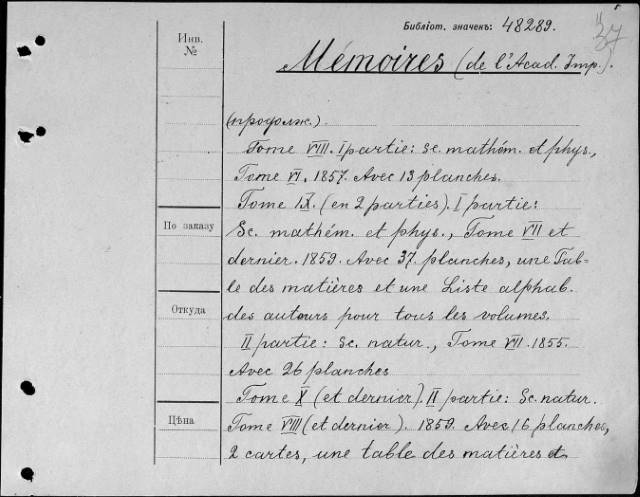 Библіот. значекъ: 48289.
37
Инв.
№
Mémoires (de l'Acad. Imp.).
(продолж.)
Tome VIII. I partie: Sc. mathém. et phys.,
Tome VI. 1857. Avec 13 planches.
Tome IX. (en 2 parties). I partie:
По заказу
Sc. mathém. et phys., Tome VII et
dernier. 1859. Avec 37 planches, une Tab-
le des matières et une Liste alphab.
Откуда
des auteurs pour tous les volumes.
II partie: Sc. natur., Tome VII. 1855.
Avec 26 planches
Tome X (et dernier). II partie: Sc. natur.
Цѣна
Tome VIII (et dernier). 1859. Avec 16 planches,
2 cartes, une table des matières et